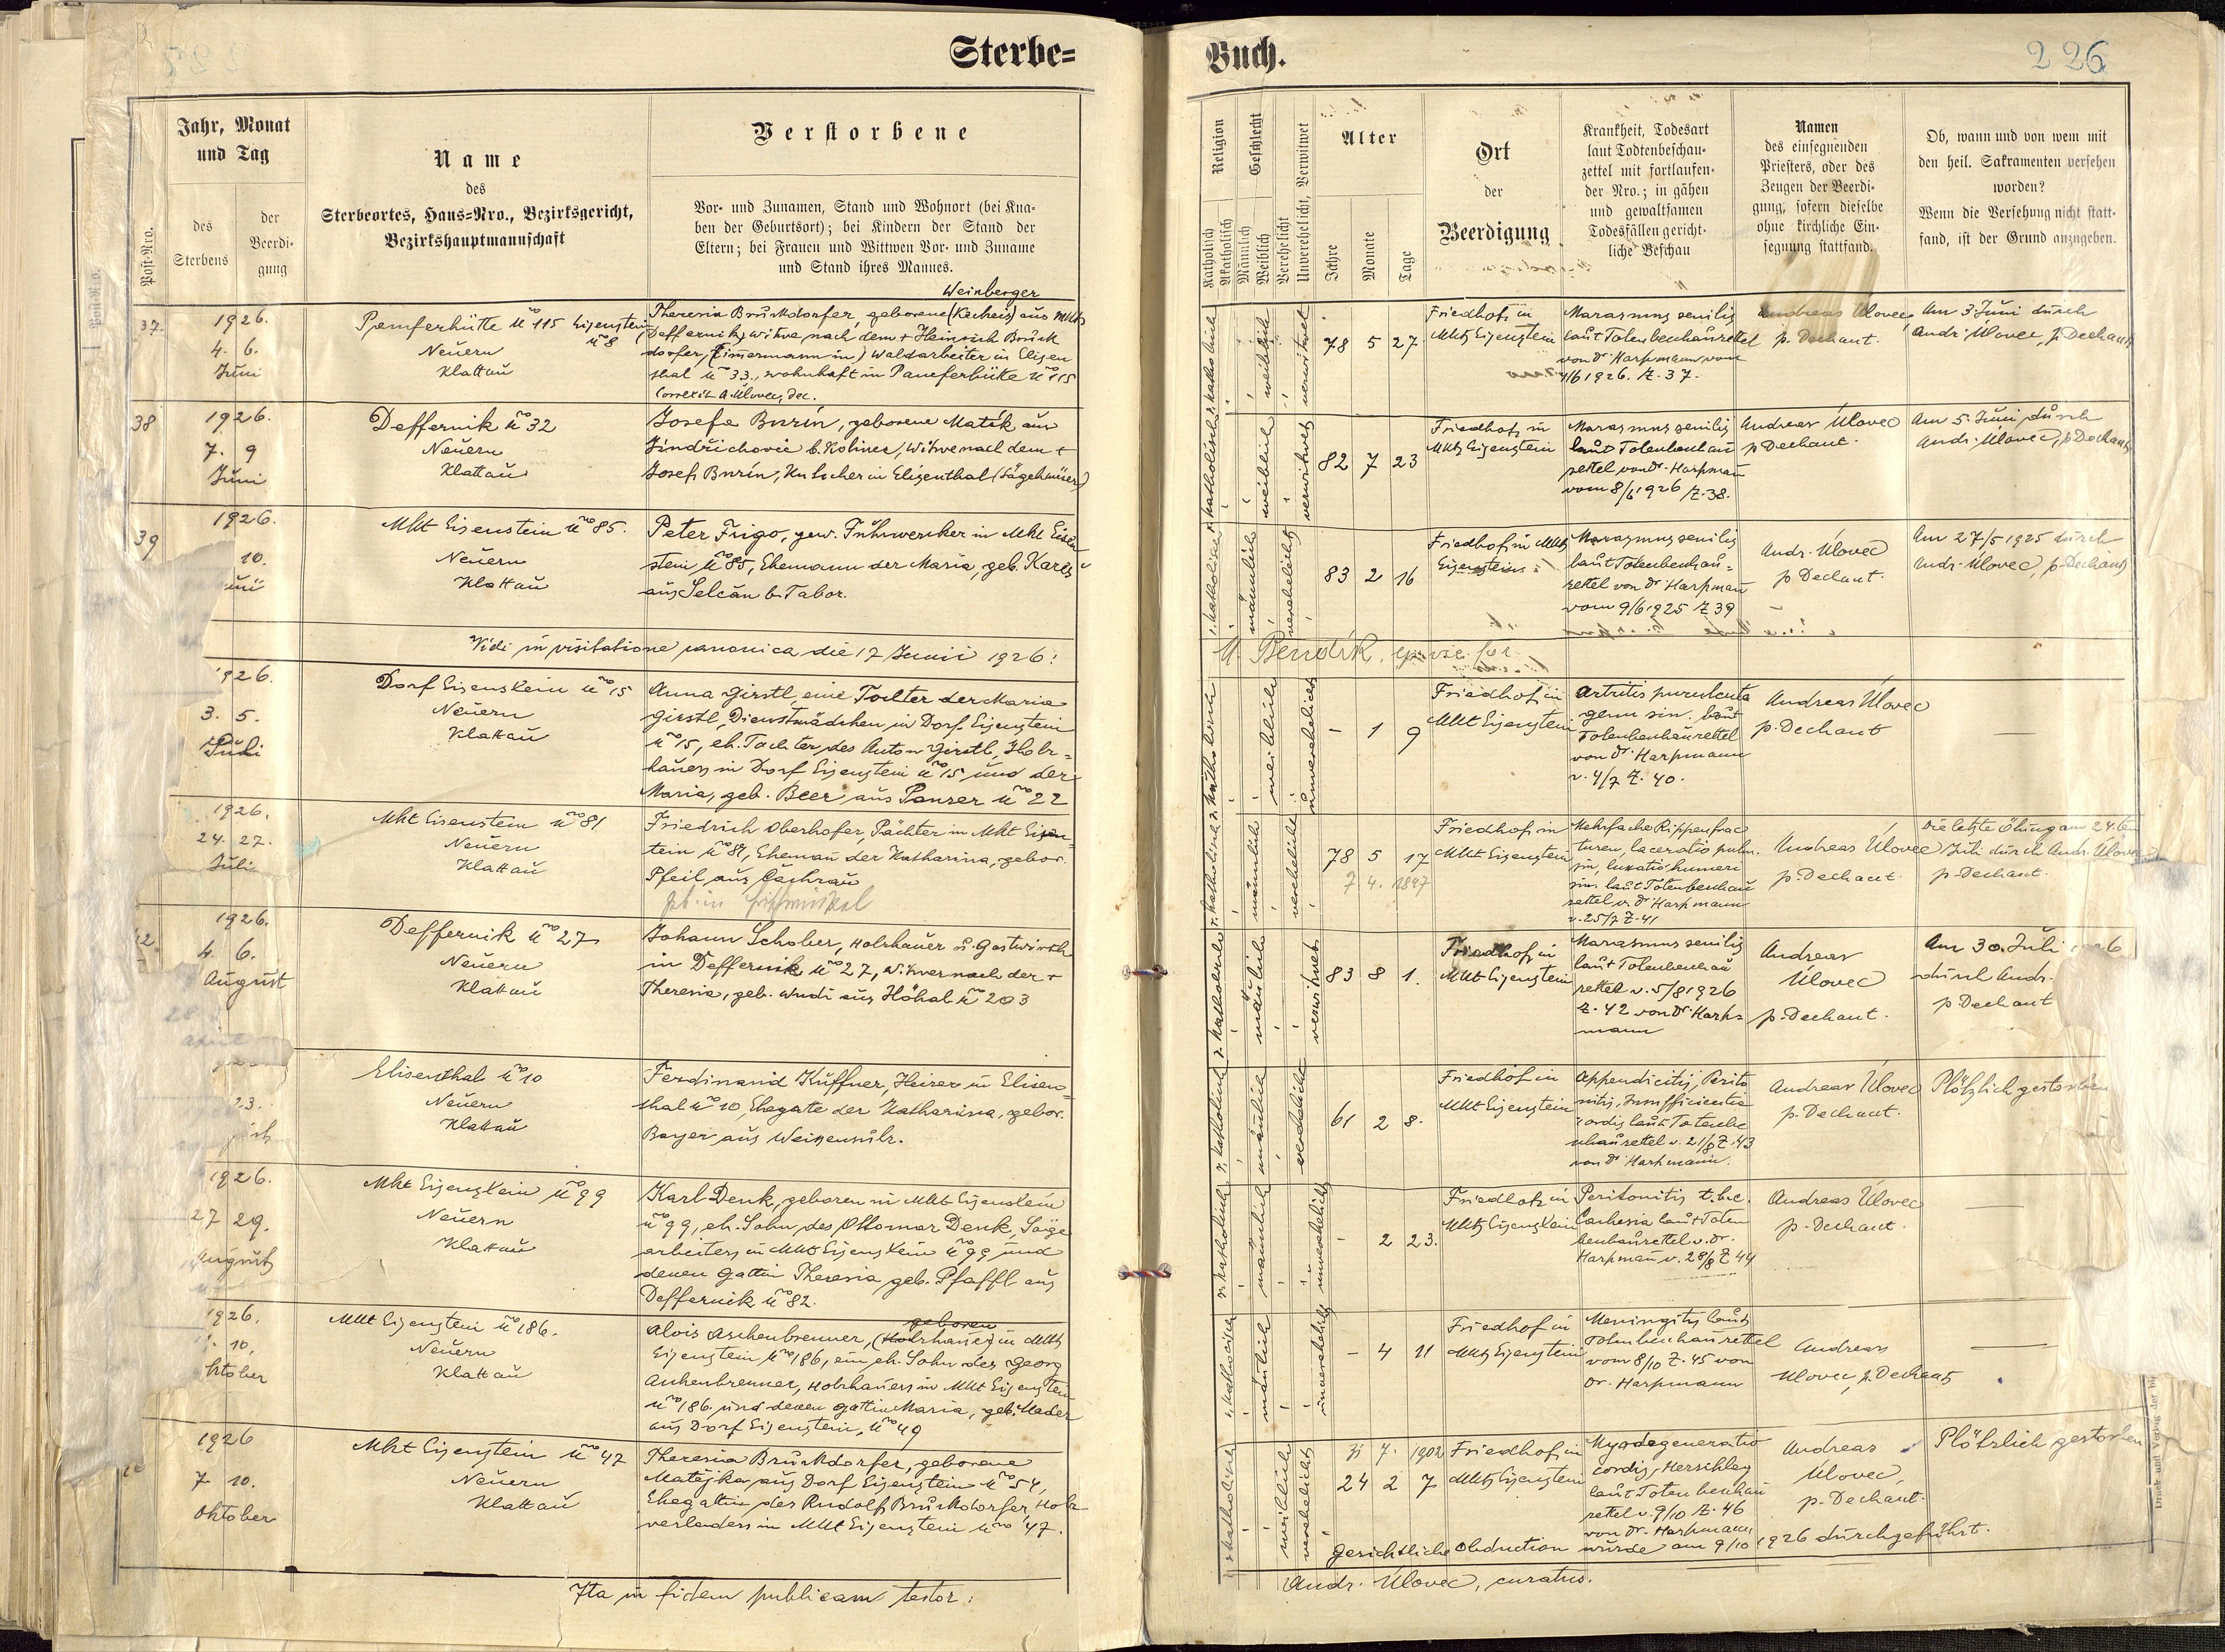 Sterbe=
Jahr, Monat
und Tag
Name
des
Sterbeortes, Haus=Nro., Bezirksgericht,
Bezirkshauptmannschaft
Verstorbene
Post=Nro.
des
Sterbens
der
Beerdi-
gung
Vor- und Zunamen, Stand und Wohnort (bei Kna-
ben der Geburtsort); bei Kindern der Stand der
Eltern; bei Frauen und Wittwen Vor- und Zuname
und Stand ihres Mannes.
37.
1926.
4. 6.
Juni
Pamferhütte No 115 Eisenstein
Neuern
Klattau
Weinberger
Theresia Bruckdorfer, geborene (Kecheis) aus Mkt
Deffernik, Witwe nach dem + Heinrich Bruck
dorfer, (Zimermann in) Waldarbeiter in Elisen
thal No 33., wohnhaft in Pamferhütte No 115
Correxit A. Úlovec, dec.
38
1926.
7. 9
Juni
Deffernik No 32
Neuern
Klattau
Josefa Burin, geborene Maték aus
Jindřichovic b. Kolinec, Witwe nach dem +
Josef Burin, Kutscher in Elisenthal (Sägehäuser)
39
1926.
10.
Mkt Eisenstein No 85.
Neuern
Klattau
Peter Frigo, gew. Fuhrwerker in Mkt Eisen
stein No 85, Ehemann der Maria, geb. Kareš
aus Selčan b. Tabor.
Vidi in visitatione canonica die 17 Junii 1926:
1926.
3. 5.
Juli
Dorf Eisenstein No 15
Neuern
Klattau
Anna Girstl, eine Tochter der Maria
Girstl, Dienstmädchen in Dorf Eisenstein
No 15, eh. Tochter des Anton Girstl, Holz=
hauers in Dorf Eisenstein No 15 und der
Maria, geb. Beer aus Panzer No 22
1926.
24. 27.
Juli
Mkt Eisenstein No 81
Neuern
Klattau
Friedrich Oberhofer, Pächter in Mkt Eisen=
stein No 81, Eheman der Katharina, gebor.
Pfeil aus Čachrau
geb. in
1926.
4. 6.
August
Deffernik No 27
Neuern
Klattau
Johann Schober, Holzhauer u. Gastwirth
in Deffernik No 27, Witwer nach der +
Theresia, geb. Wudi aus Höhal No 203
23.
Elisenthal No 10
Neuern
Klattau
Ferdinand Kuffner, Heizer in Elisen=
thal No 10, Ehegatte der Katharina, gebor.
Bayer aus Weizensulz.
1926.
27 29.
August
Mkt Eisenstein No 99
Neuern
Klattau
Karl Denk, geboren in Mkt Eisenstein
No 99, eh. Sohn des Ottomar Denk, Säge
arbeiters in Mkt Eisenstein No 99 und
denen Gattin Theresia geb. Pfaffl aus
Deffernik No 82.
1926.
10.
ktober
Mkt Eisenstein No 186.
Neuern
Klattau
geboren
Alois Aschenbrenner, (Holzhauer) in Mkt
Eisenstein No 186, ein eh. Sohn des Georg
Aschenbrenner, Holzhauers in Mkt Eisenstein
No 186 und denen Gattin Maria, geb. Mader
aus Dorf Eisenstein, No 49
1926
7 10.
Oktober
Mkt Eisenstein No 47
Neuern
Klattau
Theresia Bruckdorfer, geborene
Matějka aus Dorf Eisenstein No 54,
Ehegattin des Rudolf Bruckdorfer, Holz
verladers in Mkt Eisenstein No 47.
Ita in fidem publicam testor:
Buch.
226
Religion
Katholisch
Akatholisch
Geschlecht
Männlich
Weiblich
Verehelicht
Unverehelicht, Verwitwet
Alter
Jahre
Monate
Tage
Ort
der
Beerdigung
Krankheit, Todesart
laut Todtenbeschau-
zettel mit fortlaufen-
der Nro.; in gähen
und gewaltsamen
Todesfällen gericht-
liche Beschau
Namen
des einsegnenden
Priesters, oder des
Zeugen der Beerdi-
gung, sofern dieselbe
ohne kirchliche Ein-
segnung stattfand.
Ob, wann und von wem mit
den heil. Sakramenten versehen
worden?
Wenn die Versehung nicht statt-
fand, ist der Grund anzugeben.
r. katholisch
weiblich
verwitwet
78 5 27
Friedhof in
Mkt Eisenstein
Marasmus senilis
laut Totenbeschauzettel
von Dr Harpmann vom
4/6 1926. Z. 37.
Andreas Úlovec,
p. Dechant.
Am 3. Juni durch
Andr. Úlovec, p. Dechant
r. katholisch
weiblich
verwitwet
82 7 23
Friedhof in
Mkt Eisenstein
Marasmus senilis
laut Totenbeschau
zettel von Dr. Harpman
vom 8/6 1926 Z. 38.
Andreas Úlovec
p Dechant.
Am 5. Juni durch
Andr. Úlovec, p Dechant
r. katholisch
männlich
verehelicht
83 2 16
Friedhof in Mkt
Eisenstein
Marasmus senilis
laut Totenbeschau=
zettel von Dr Harpman
vom 9/6 1925 Z 39
Andr. Úlovec
p Dechant.
Am 27/5 1925 durch
Andr. Úlovec, p. Dechant
M. Bendík, ep. vic. for
r. katholisch
weiblich
unverehelicht
- 1 9
Friedhof in
Mkt Eisenstein
Artritis purulenta
genu sin. laut
Totenbeschauzettel
von Dr. Harpmann
v. 4/7 Z. 40.
Andreas Úlovec
p. Dechant
—
r. katholisch
männlich
verehelicht
78 5 17
7 4. 1847
Friedhof in
Mkt Eisenstein
Mehrfache Rippenfrac
turen, laceratio pulm.
sin, luxatio humeri
sin. laut Totenbeschau
zettel v. Dr Harpmann
v. 25/7 Z. 41
Andreas Úlovec
p. Dechant
Die letzte Ölung am 24. ten
Juli durch Andr. Úlovec
p. Dechant.
r. katholisch
mänlich
verwitwet
83 8 1.
Friedhof in
Mkt Eisenstein
Marasmus senilis
laut Totenbeschau
zettel v. 5/8 1926
Z. 42 von Dr. Harp=
mann
Andreas
Úlovec
p. Dechant.
Am 30. Juli
durch Andr.
p. Dechant
r. katholisch
mänlich
verehelicht
61 2 8.
Friedhof in
Mkt Eisenstein
Appendicitis, Perito
nitis, Insufficientia
cordis laut Totenbe
schauzettel v. 21/8 Z. 43
von Dr Harpmann.
Andreas Úlovec
p. Dechant.
Plötzlich gestorben
r. katholisch
männlich
unverehelicht
- 2 23.
Friedhof in
Mkt Eisenstein
Peritonitis t.b.c.
Cachexia laut Toten
beschauzettel v. Dr.
Harpman v. 28/8 Z 44
Andreas Úlovec
p. Dechant.
—
r. katholisch
mänlich
unverehelicht
- 4 11
Friedhof in
Mkt Eisenstein
Meningitis laut
Totenbeschauzettel
vom 8/10 Z. 45 von
Dr. Harpmann
Andreas
Úlovec, p. Dechant
—
r. katholisch
weiblich
verehelicht
7. 1902
24 2 7
Friedhof in
Mkt Eisenstein
Myodegeneratio
cordis, Herschlag
laut Totenbeschau
zettel v. 9/10 Z. 46
von Dr. Harpmann
Andreas
Úlovec,
p. Dechant.
Plötzlich gestorben
Gerichtliche Obduction wurde am 9/10 1926 durchgeführt.
Andr. Úlovec, curatus.